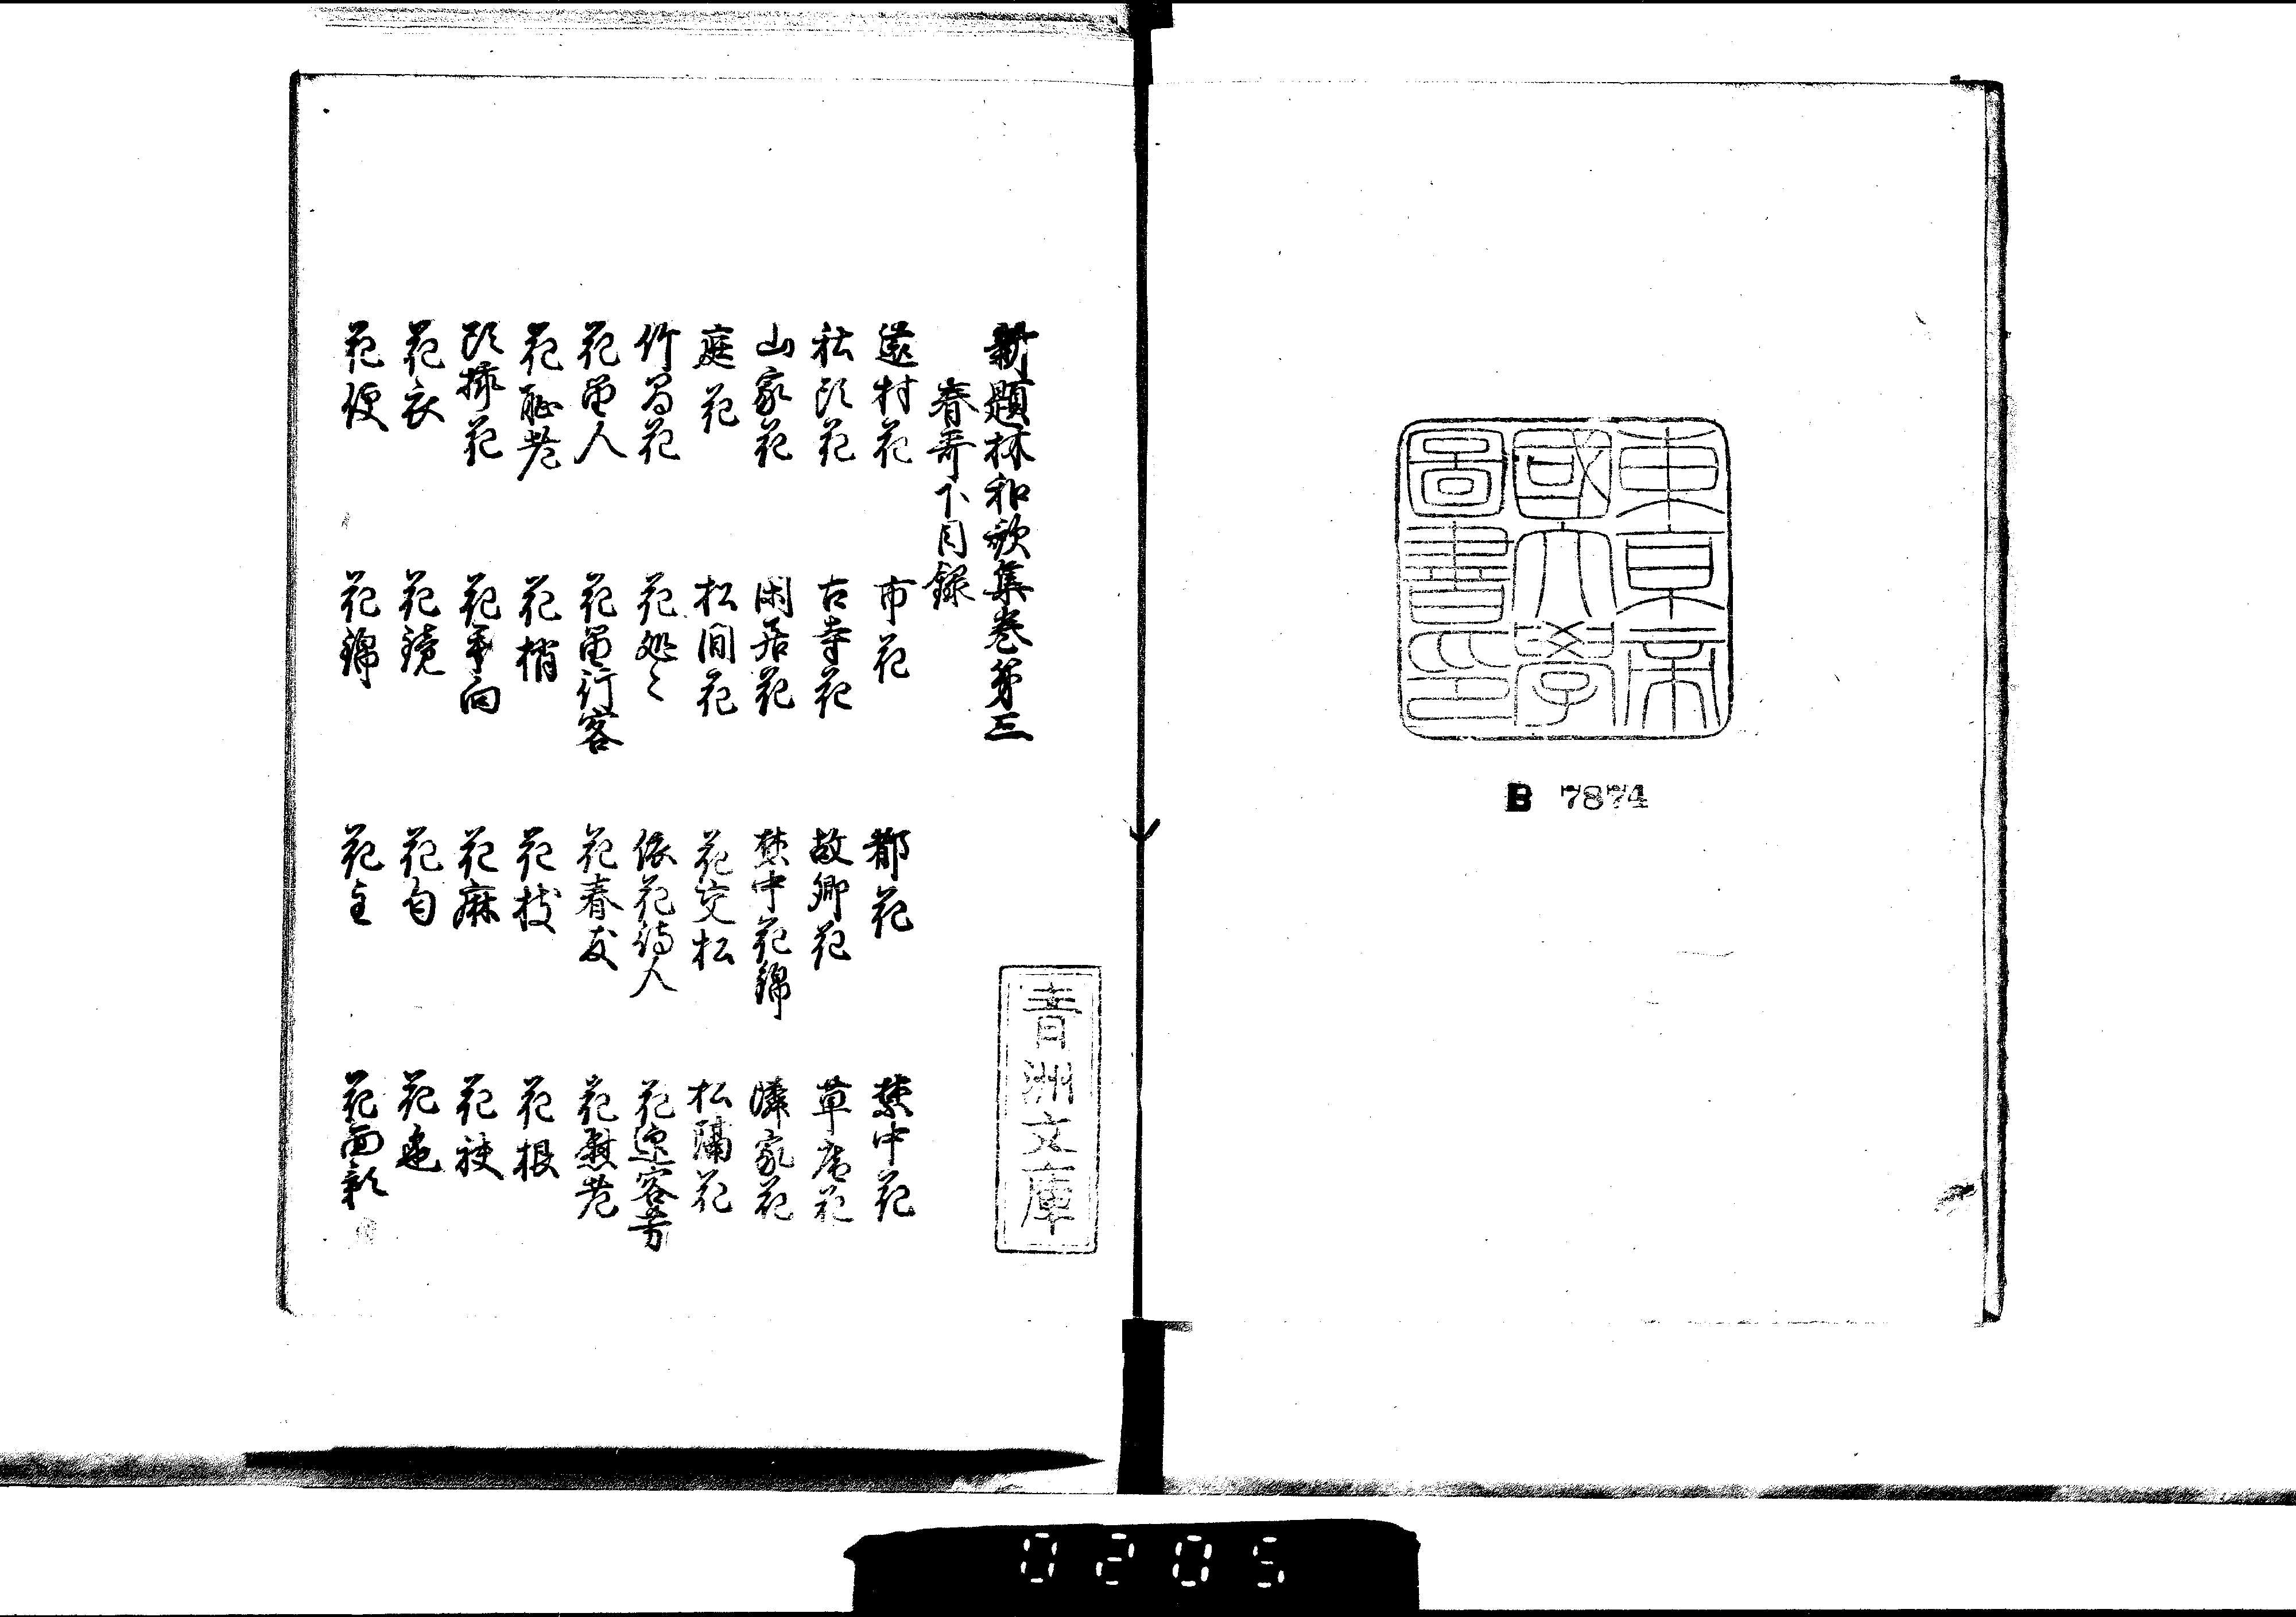 東京帝
國大學
圖書印
B 7874
新題林和歌集巻第三
春哥下目録
青洲文庫
遠村花 市花 都花 禁中花
社頭花 古寺花 故郷花 草庵花
山家花 閑居花 禁中花錦 隣家花
庭花 松間花 花交松 松隔花
竹間花 花処〻 依花待人 花迎客芳
花留人 花留行客 花春友 花慰老
花恥老 花梢 花枝 花根
頭挿花 花手向 花麻 花袂
花衣 花鏡 花匂 花色
花便 花錦 花主 花面影
0205